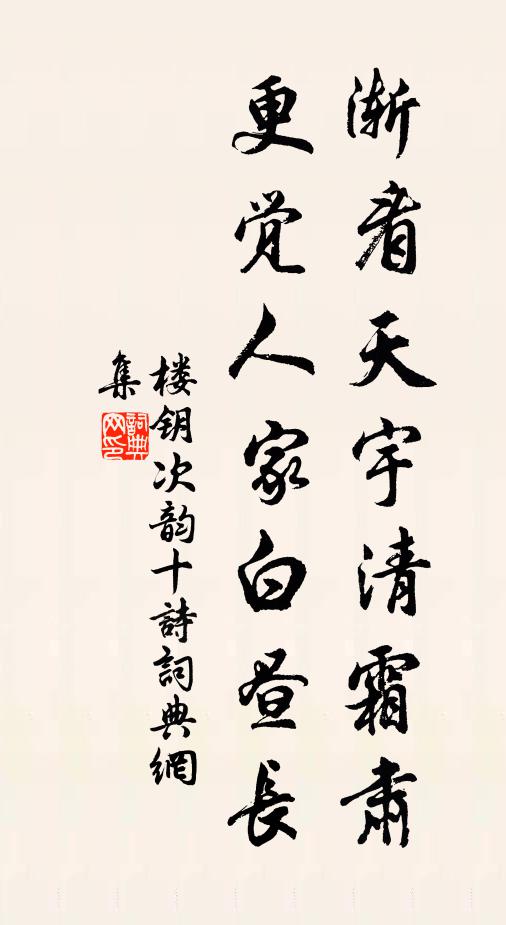 渐看天宇清霜肃
更觉人家白昼长
楼钥次韵十詩詞典網
集
詞典网印